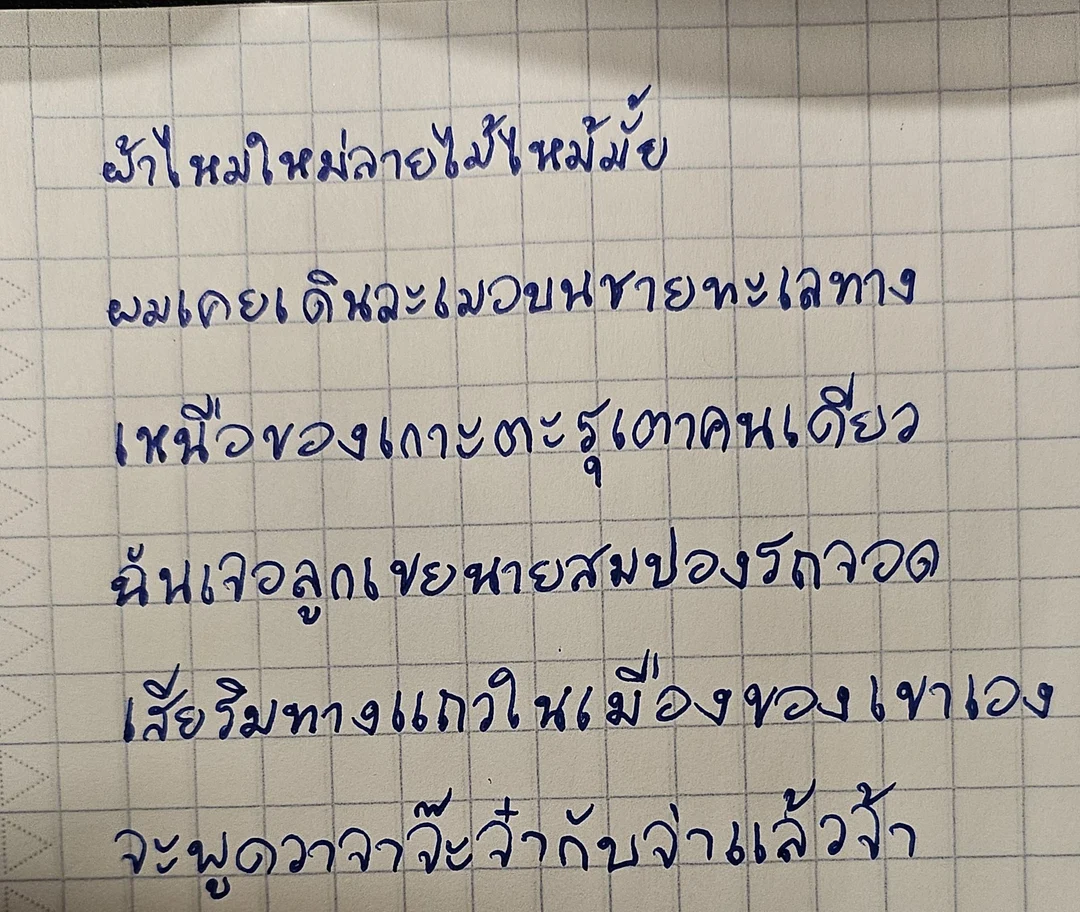 ผ้าไหมใหม่ลายไม้ไหม้มั้ย
ผมเคยเดินละเมอบนชายทะเลทาง
เหนือของเกาะตะรุเตาคนเดียว
ฉันเจอลูกเขยนายสมปองรถจอด
เสียริมทางแถวในเมืองของเขาเอง
จะพูดวาจาจ๊ะจ๋ากับจ่าแล้วจ้า